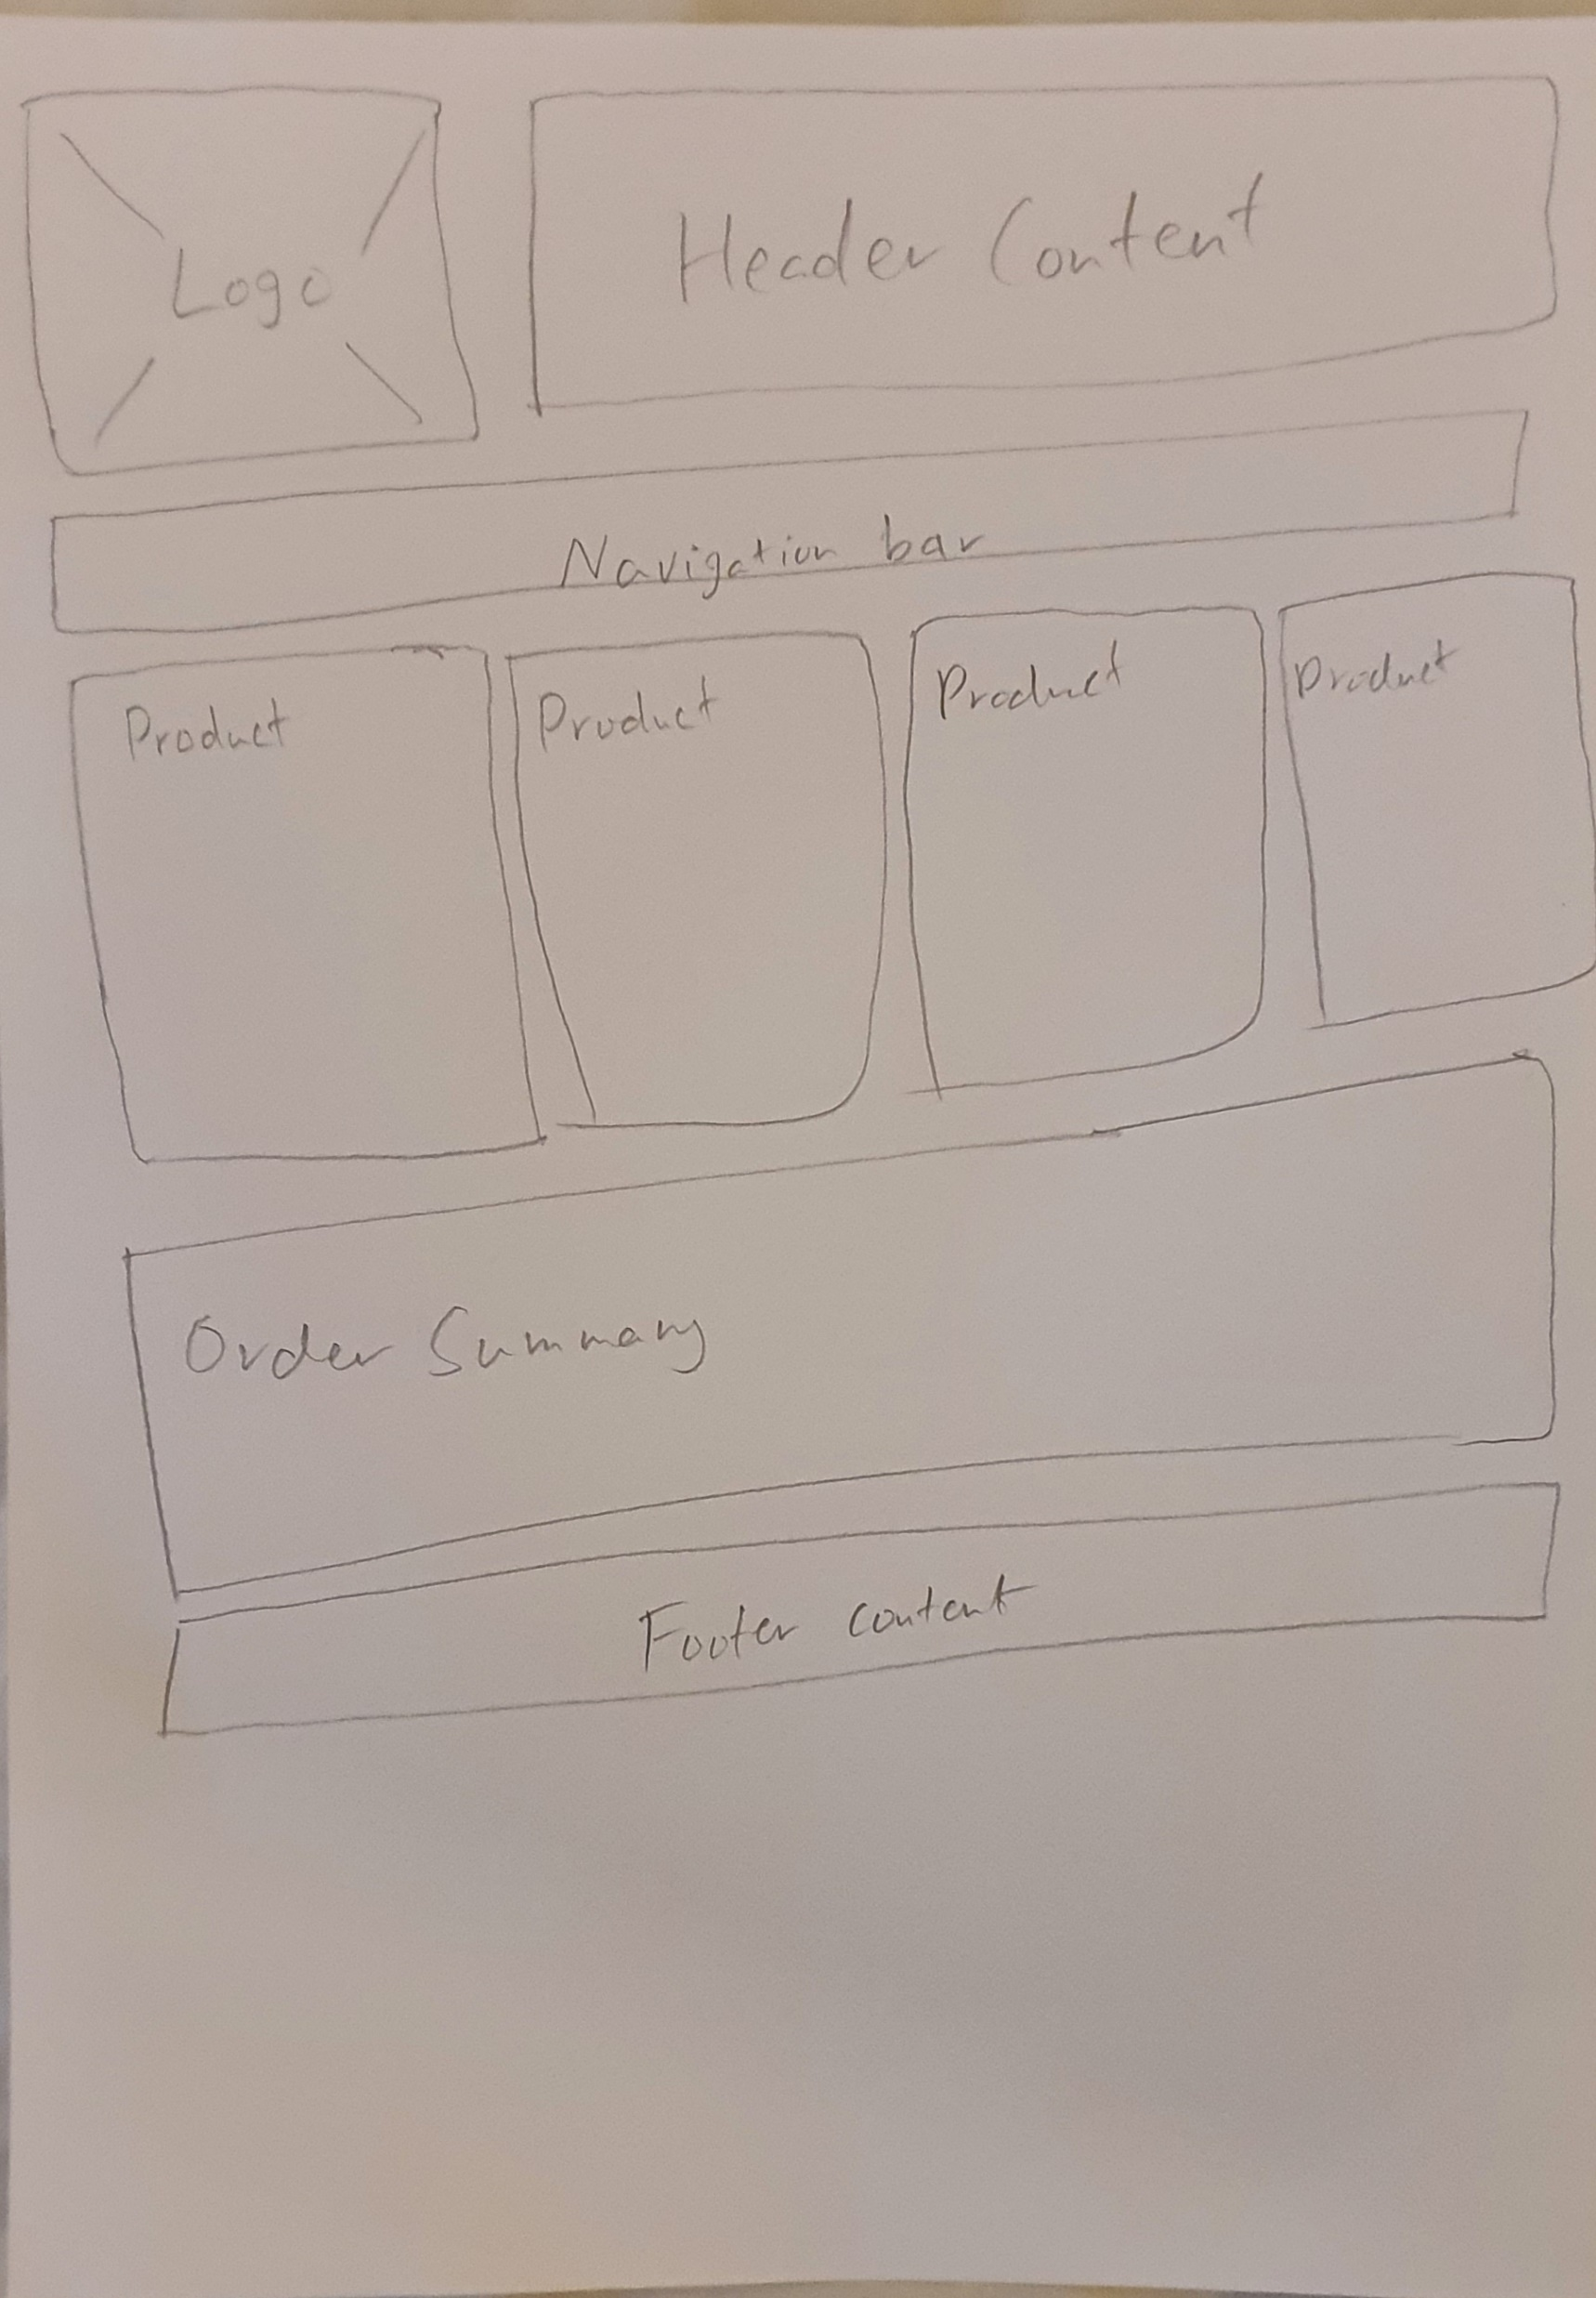 Logo
Header Content
Navigation bar
Product
Product
Product
Product
Order Summary
Footer content